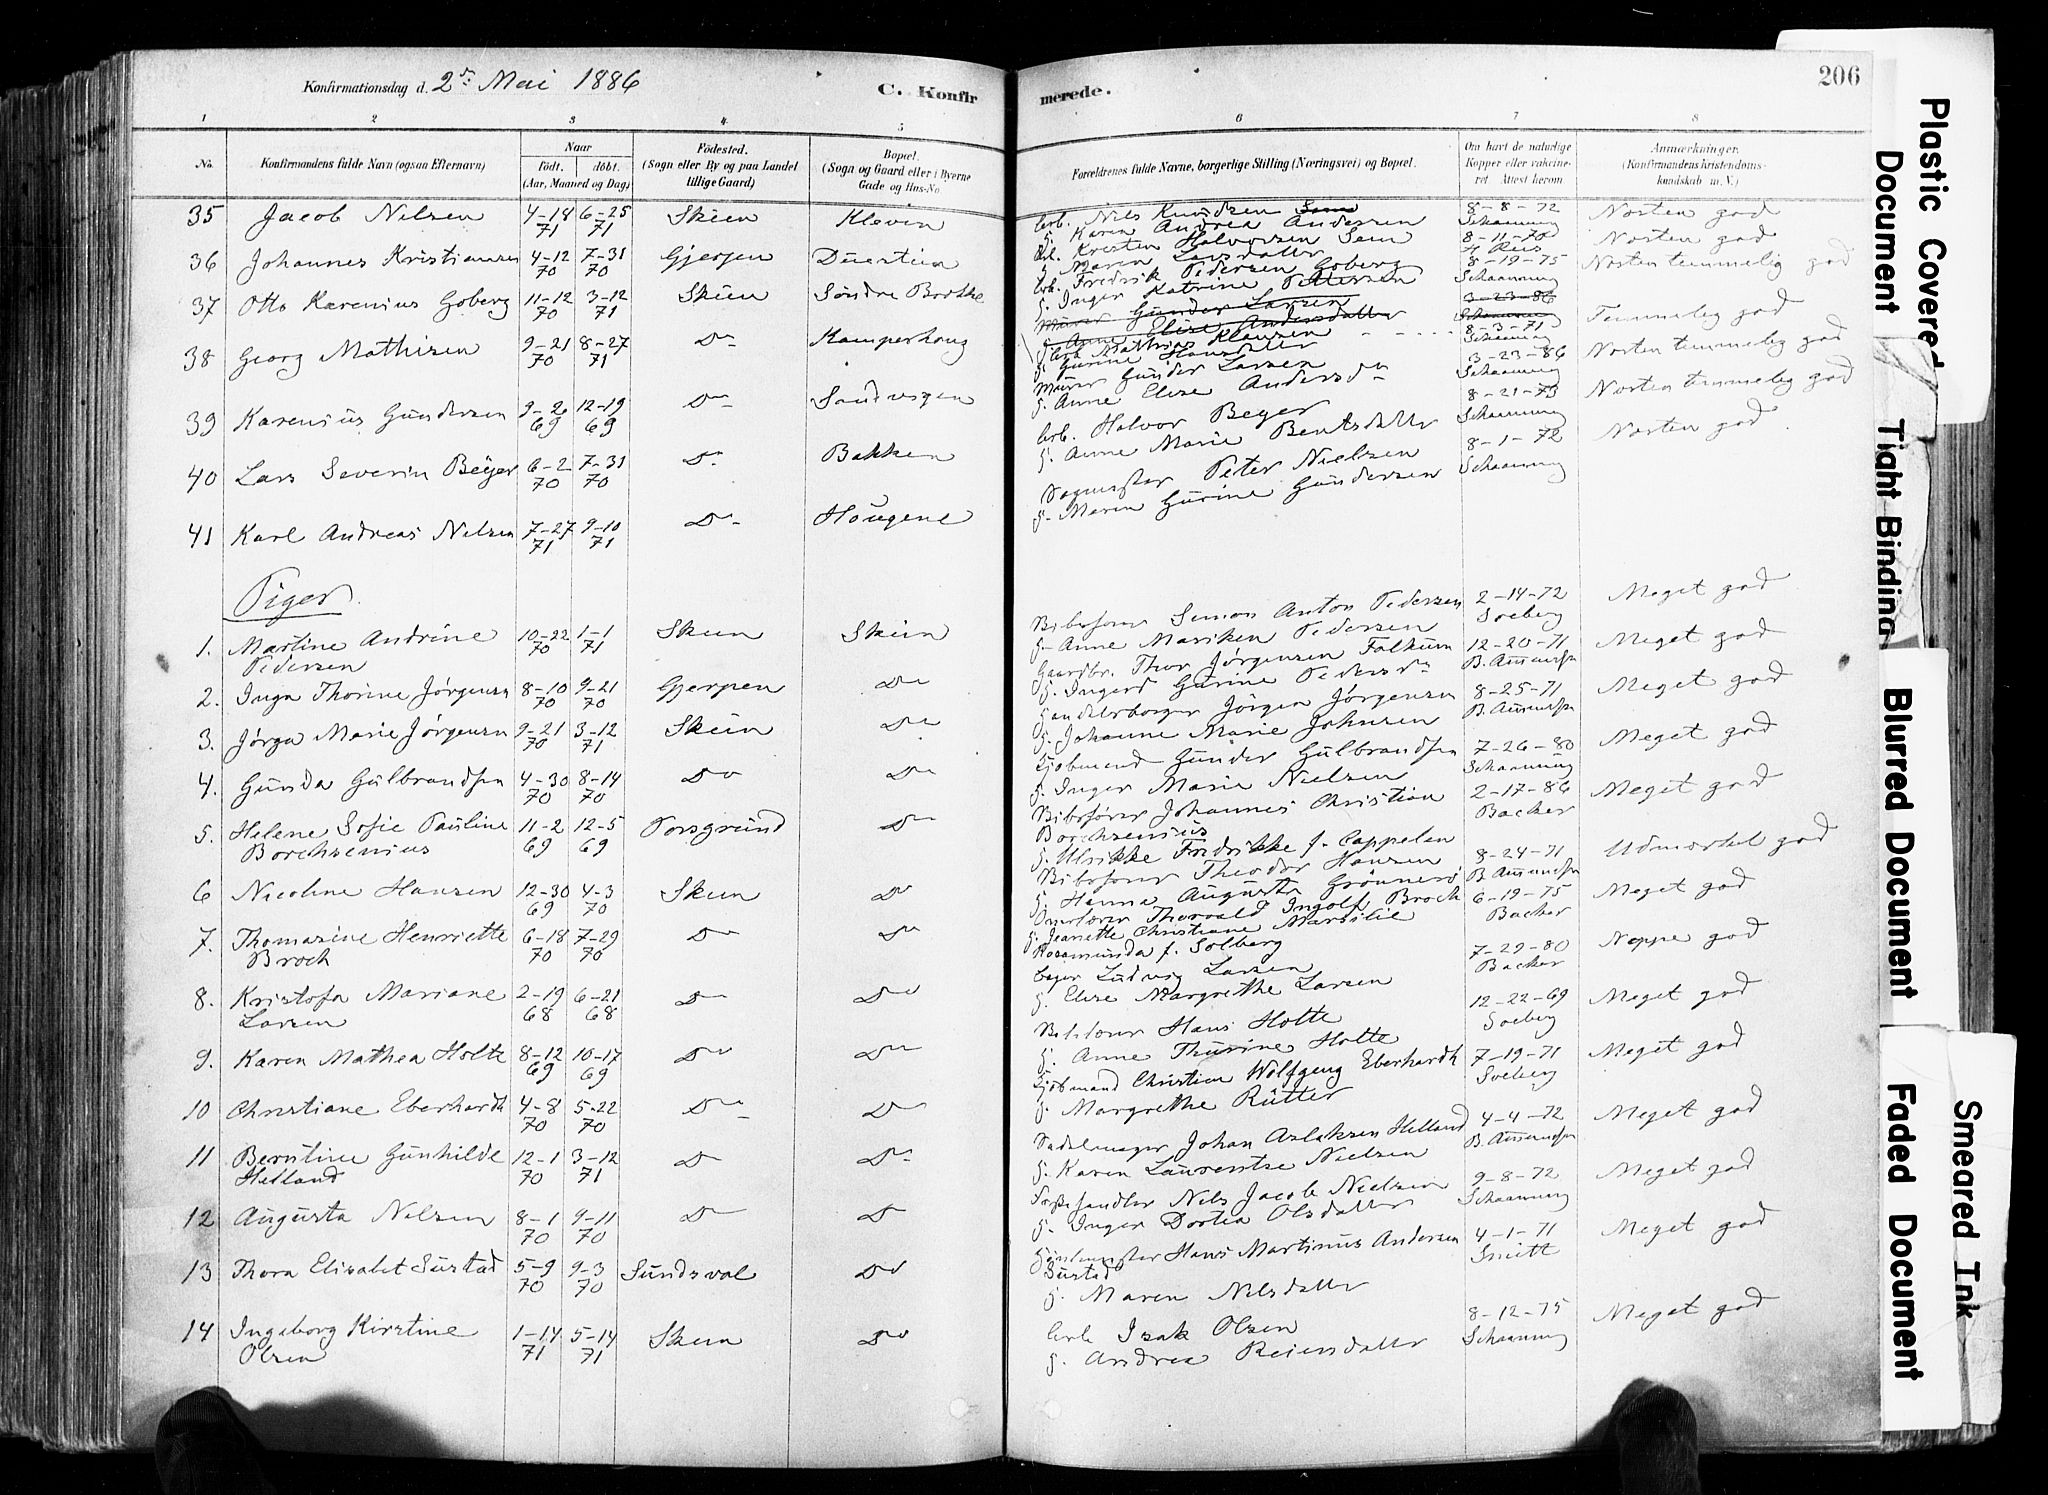 Konfirmationsdag d. 2den Mai 1886
C. Konfirmerede.
206
1 2 3 4 5 6 7 8
No.
Konfirmandens fulde Navn (ogsaa Efternavn)
Naar
født. døbt.
(Aar, Maaned og Dag)
Fødested.
(Sogn eller By og paa Landet
tillige Gaard)
Bopæl.
(Sogn og Gaard eller i Byerne
Gade og Hus-No.
Forældrenes fulde Navne, borgerlige Stilling (Næringsvei) og Bopæl.
Om havt de naturlige
Kopper eller vakcine-
ret. Attest herom.
Anmærkninger.
(Konfirmandens kristendoms-
kundskab m. V.)
35 Jacob Nilsen 4-18 71 6-25 71 Skien Klevin Arb. Nils Knudsen
g. Karen Andrea Andersen 8-8-72 Schaanning Næsten god
36 Johannes Kristiansen 4-12 70 7-31 70 Gjerpen Kristen Halvorsen Sem
g. Maren Larsdatter 8-11-70 Næsten god
37 Otto Karenius Goberg 11-12 70 3-12 71 Skien Søndre Brekke Arb. Fredrik Pedersen Goberg
g. Inger Katrine Pettersen 8-19-75 Schaanning Næsten temmelig god
Murer Gunder Larsen
g. Anne Elise Andersdatter 3-23-86 Schaanning
38 Georg Mathisen 9-21 70 8-27 71 Do Kamperhoug Arb. Mathias Klausen
g. Gurine Hansdatter 8-3-71 Schaanning Temmelig god
39 Karenius Gundersen 9-26 69 12-19 69 Do Sandvigen Murer Gunder Larsen
g. Anne Elise Andersdr 3-23-86 Schaanning Næsten temmelig god
40 Lars Severin Beyer 6-2 70 7-31 70 Do Bakken Arb. Halvor Beyer
g. Anne Marie Bentsdatter 8-21-73 Schaanning Næsten temmelig god
41 Karl Andreas Nilsen 7-27 71 9-10 71 Do Hougene Peter Nielsen
g. Maren Gurine Gundersen 8-1-72 Schaanning Næsten god
Piger
1. Martine Andrine
Pedersen 10-22 70 1-1 71 Skien Skien Simon Anton Pedersen
g. Anne Mariken Pedersen 2-14-72 Soeberg Meget god
2. Inga Thorine Jørgensen 8-10 70 9-21 70 Gjerpen Do Gaardbr. Thor Jørgensen Falkum
g. Ingerd Gurine Pedersdr 12-20-71 B. Amundsen Meget god
3. Jørga Marie Jørgensen 9-21 70 3-12 71 Skien Do Handelsborger Jørgen Jørgensen
g. Johanne Marie Johnsen 8-25-71 B. Amundsen Meget god
4. Gunda Gulbrandsen 4-30 70 8-14 70 Do Do Kjøbmand Gunder Gulbrandsen
g. Inger Marie Nielsen 7-26-80 Schaanning Meget god
5. Helene Sofie Pauline
Borchsenius 11-2 69 12-5 69 Porsgrund Do Skibsfører Johannes Christian
Borchsenius
g. Ulrikke Fredrikke f. Cappelen 2-17-86 Backer Meget god
6 Nicoline Hansen 12-30 69 4-3 70 Skien Do Skibsfører Theodor Hansen
g. Hanna Augusta Grønnerø 8-24-71 B. Amundsen Udmærket god
7. Thomasine Henriette
Broch 6-18 70 7-29 70 Do Do Thorvald Ingolf Broch
g. Jeanette Christiane Marsilie
Rosamunda f. Solberg 6-19-75 Backer Meget god
8. Kristofa Mariane
Larsen 2-19 68 6-21 68 Do Do Ludvig Larsen
g. Elise Margrethe Larsen 7-29-80 Backer Neppe god
9. Karen Mathea Holte 8-12 69 10-17 69 Do Do Hans Holte
g. Anne Thurine Holte 12-22-69 Soeberg Meget god
10 Christiane Eberhardt 4-8 70 5-22 70 Do Do Kjøbmand Christian Wolfgang Eberhardt
g. Margrethe Rütter 7-19-71 Soeberg Meget god
11 Berntine Gunhilde
Helland 12-1 70 3-12 71 Do Do Sadelmager Johan Aslaksen Helland
g. Karen Laurentze Nielsen 4-4-72 B. Amundsen Meget god
12 Augusta Nilsen 8-1 70 9-11 70 Do Do Nils Jacob Nielsen
g. Inger Dortea Olsdatter 9-8-72 Schaanning Meget god
13 Thora Elisabet Surtad 5-9 70 9-3 70 Sundsval Do Hans Martinus Andersen
Surtad
g. Maren Nilsdatter 4-1-71 Smitt Meget god
14 Ingeborg Kirstine
Olsen 1-14 71 5-14 71 Skien Do Arb Isak Olsen
g. Andrea Reiersdatter 8-12-75 Schaanning Meget god
Plastic Covered Document
Tight Binding
Blurred Document
Faded Document
Smeared Ink